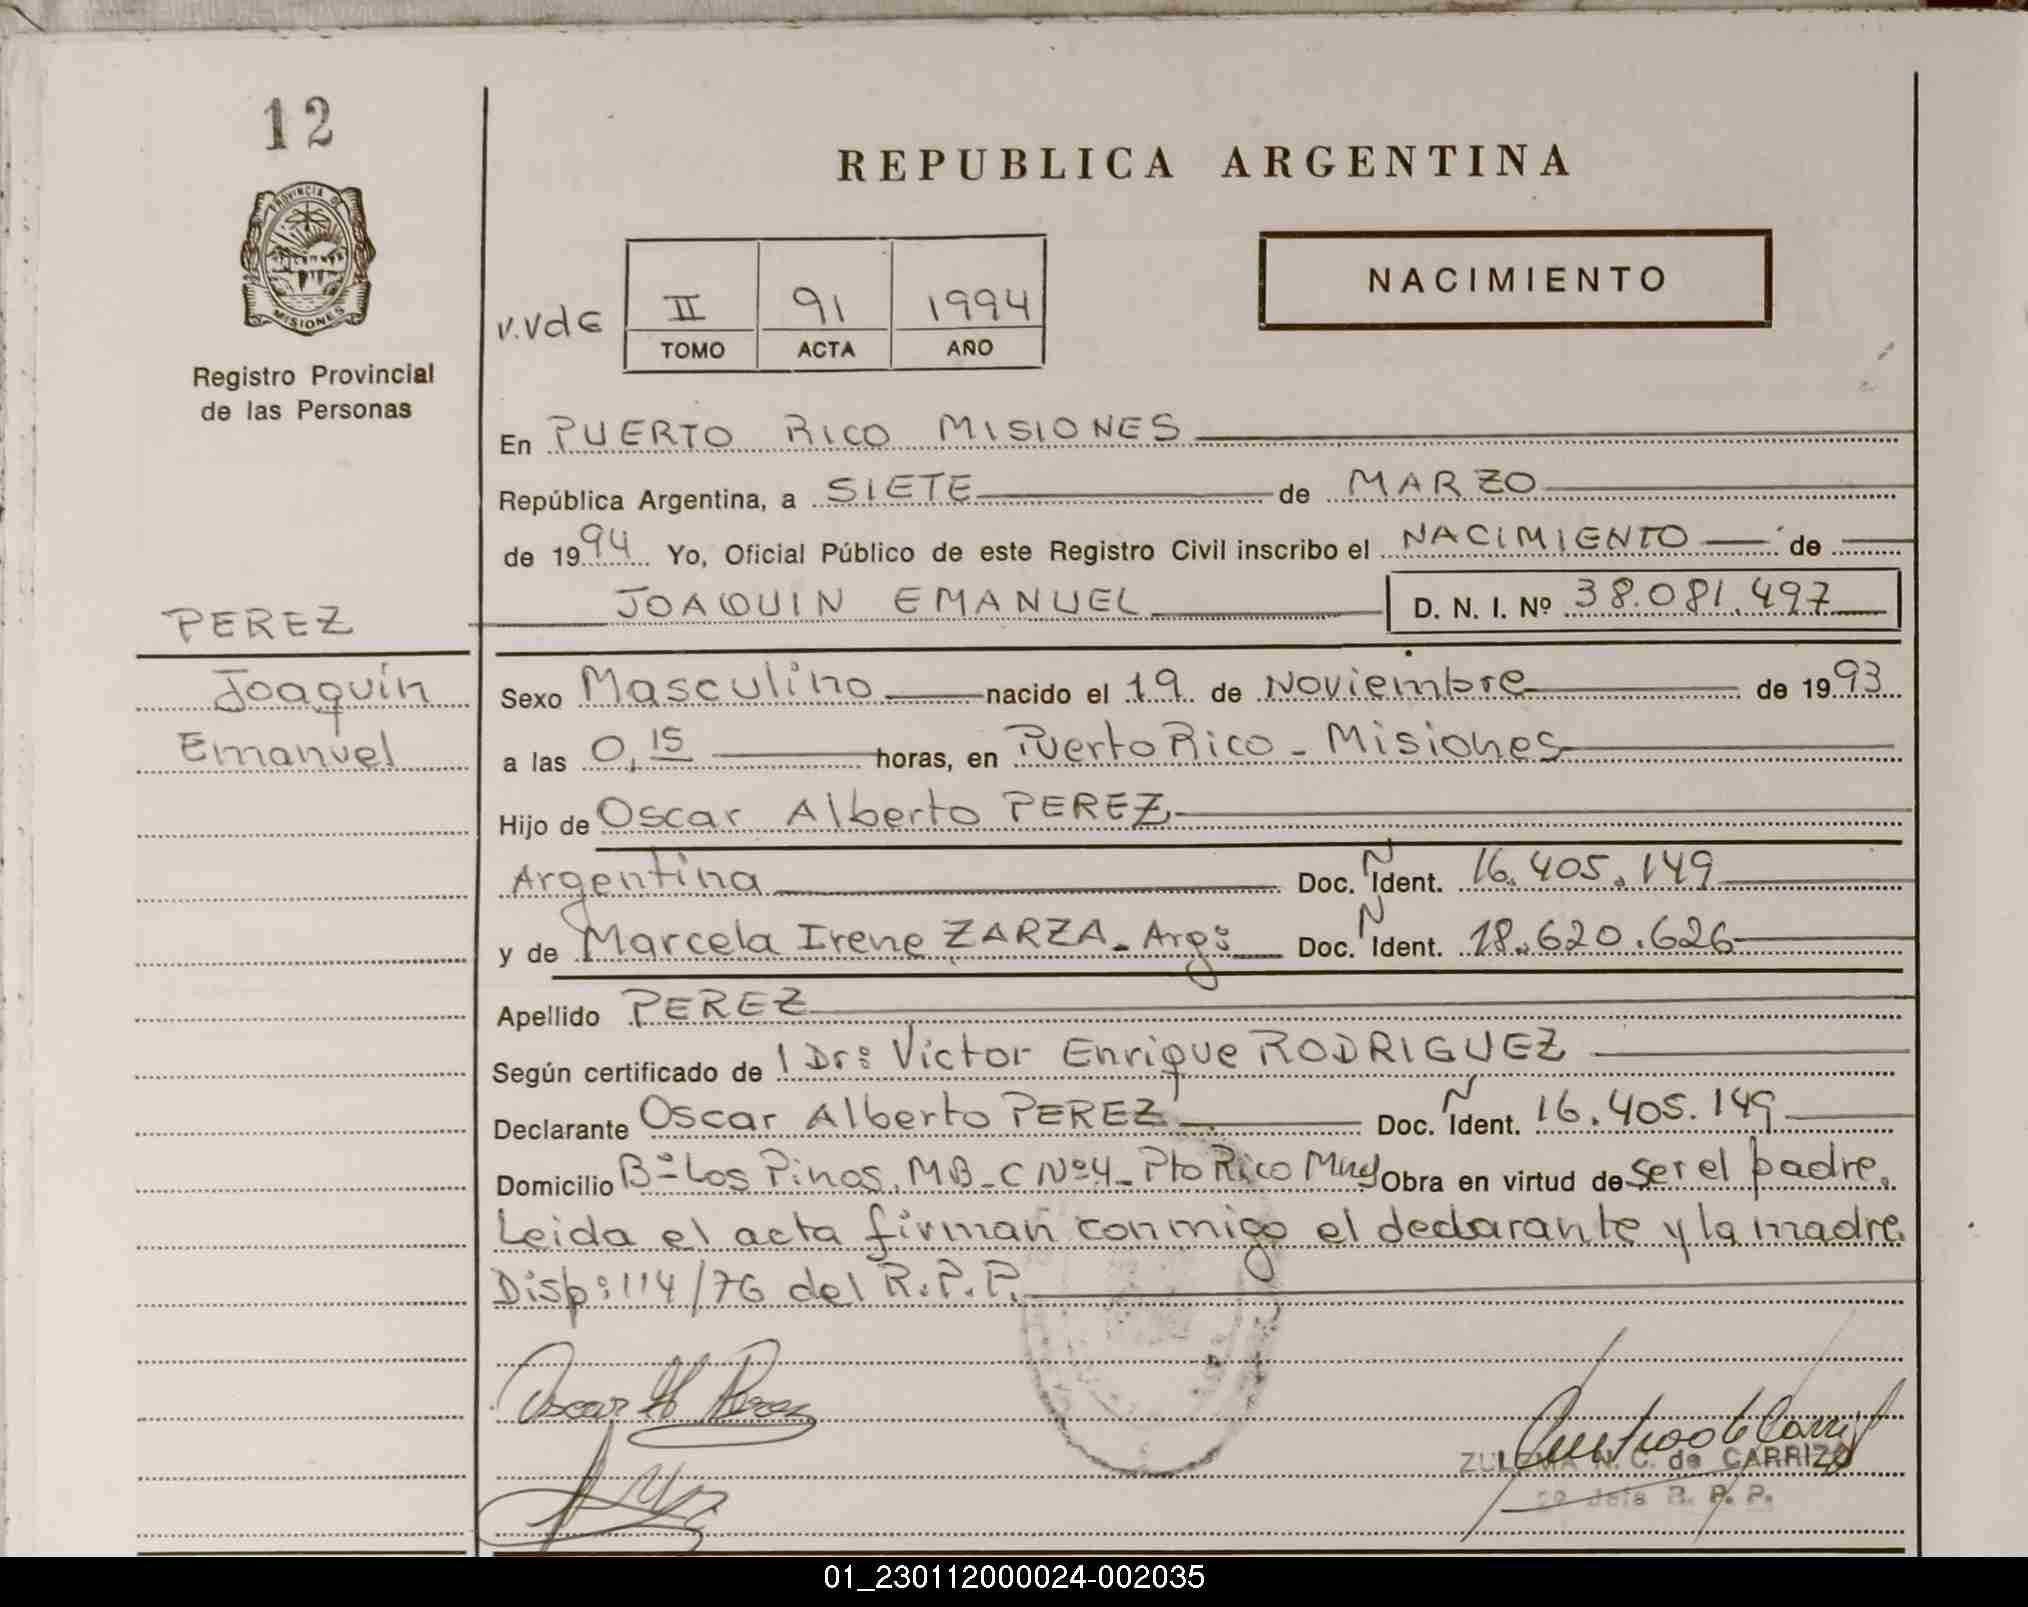 12
REPUBLICA ARGENTINA
PROVINCIA DE
MISIONES
Registro Provincial
de las Personas
II 91 1994
TOMO ACTA AÑO
NACIMIENTO
En PUERTO RICO MISIONES
República Argentina, a SIETE de MARZO
de 1994 Yo, Oficial Público de este Registro Civil inscribo el NACIMIENTO de
JOAQUIN EMANUEL D. N. I. Nº 38.081.497
PEREZ
Joaquín
Emanuel
Sexo Masculino nacido el 19 de Noviembre de 1993
a las 0,15 horas, en Puerto Rico - Misiones
Hijo de Oscar Alberto PEREZ
Argentina Doc. N Ident. 16.405.149
y de Marcela Irene ZARZA - Arg: Doc. N Ident. 18.620.626
Apellido PEREZ
Según certificado de l Dr: Victor Enrique RODRIGUEZ
Declarante Oscar Alberto PEREZ Doc. N Ident. 16.405.149
Domicilio Bº Los Pinos, MB - C Nº 4 - Pto Rico Obra en virtud de ser el padre.
Leida el acta firman conmigo el declarante y la madre.
Disp: 114/76 del R.P.P.
Oscar A Perez
ZULEMA N. C. de CARRIZO
Jefe R. P. P.
01_230112000024-002035